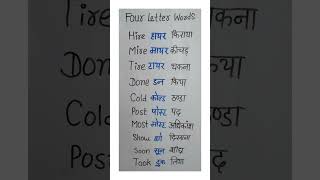 Four Letter Words
Hire हायर किराया
Mire मायर कीचड़
Tire टायर थकना
Done डन किया
Cold कोल्ड ठण्डा
Post पोस्ट पद
Most मोस्ट अधिकांश
Show शो दिखाना
Soon सून शीघ्र
Took टुक लिया